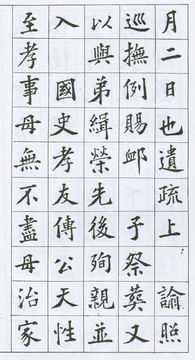 月二日也遺疏上諭照
巡撫例賜卹予祭葬又
以與弟緝榮先後殉親並
入國史孝友傳公天性
至孝事母無不盡母治家